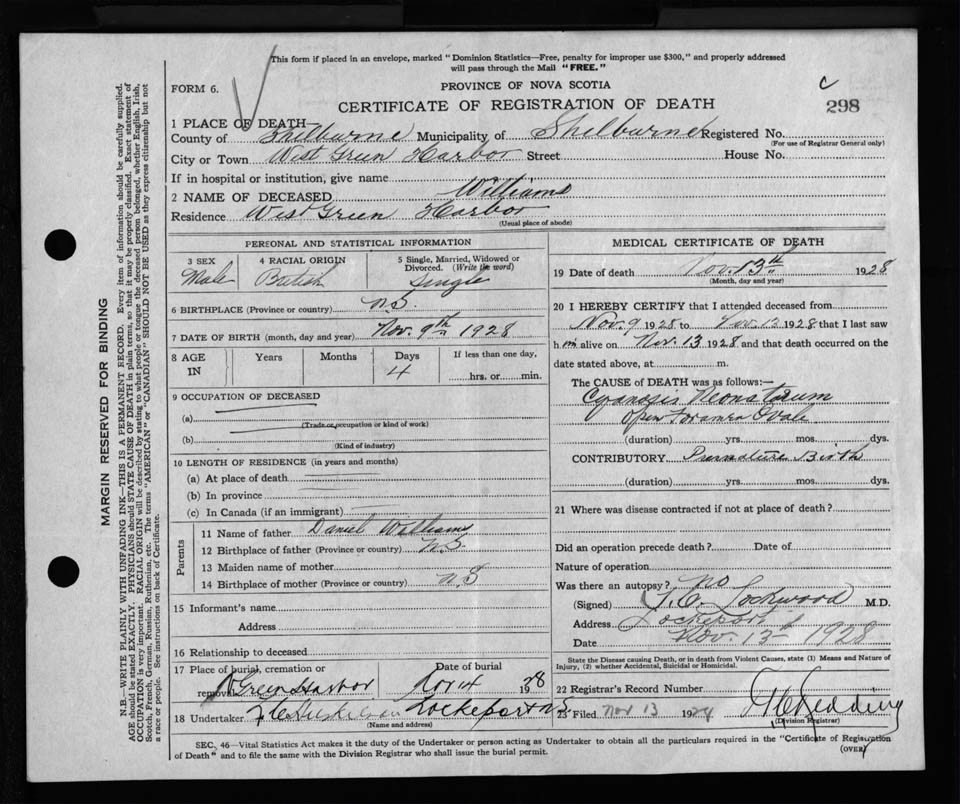 This form if placed in an envelope, marked "Dominion Statistics—Free, penalty for improper use $300," and properly addressed
will pass through the Mail "FREE."
FORM 6.
PROVINCE OF NOVA SCOTIA
C
CERTIFICATE OF REGISTRATION OF DEATH
298
1 PLACE OF DEATH
County of Shelburne Municipality of Shelburne Registered No.
(For use of Registrar General only)
City or Town West Green Harbor Street House No.
If in hospital or institution, give name
2 NAME OF DECEASED Williams
Residence West Green Harbor
(Usual place of abode)
PERSONAL AND STATISTICAL INFORMATION
3 SEX 4 RACIAL ORIGIN 5 Single, Married, Widowed or
Divorced. (Write the word)
Male British Single
6 BIRTHPLACE (Province or country) N.S.
7 DATE OF BIRTH (month, day and year) Nov. 9th 1928
8 AGE Years Months Days If less than one day,
IN 4 hrs. or min.
9 OCCUPATION OF DECEASED
(a)
(Trade or occupation or kind of work)
(b)
(Kind of industry)
10 LENGTH OF RESIDENCE (in years and months)
(a) At place of death
(b) In province
(c) In Canada (if an immigrant)
Parents
11 Name of father Daniel Williams
12 Birthplace of father (Province or country) N.S.
13 Maiden name of mother
14 Birthplace of mother (Province or country) N.S
15 Informant's name
Address
16 Relationship to deceased
17 Place of burial, cremation or Date of burial
removal Green Harbor Nov 14 1928
18 Undertaker Lockeport NS
(Name and address)
MEDICAL CERTIFICATE OF DEATH
19 Date of death Nov. 13th 1928
(Month, day and year)
20 I HEREBY CERTIFY that I attended deceased from
Nov. 9 1928 to Nov. 13 1928 that I last saw
him alive on Nov. 13 1928 and that death occurred on the
date stated above, at m.
The CAUSE of DEATH was as follows:—
Cyanosis Neonatorum
Open Foramen Ovale
(duration) yrs. mos. dys.
CONTRIBUTORY Premature Birth
(duration) yrs. mos. dys.
21 Where was disease contracted if not at place of death?
Did an operation precede death? Date of
Nature of operation
Was there an autopsy? No
(Signed) Lockwood M.D.
Address Lockeport
Date Nov. 13th 1928
State the Disease causing Death, or in death from Violent Causes, state (1) Means and Nature of
Injury, (2) whether Accidental, Suicidal or Homicidal.
22 Registrar's Record Number
23 Filed Nov 13 1928 Redding
(Division Registrar)
SEC. 46—Vital Statistics Act makes it the duty of the Undertaker or person acting as Undertaker to obtain all the particulars required in the "Certificate of Registration
of Death" and to file the same with the Division Registrar who shall issue the burial permit.
(OVER)
MARGIN RESERVED FOR BINDING
N.B.—WRITE PLAINLY WITH UNFADING INK—THIS IS A PERMANENT RECORD. Every item of information should be carefully supplied.
AGE should be stated EXACTLY. PHYSICIANS should STATE CAUSE OF DEATH in plain terms, so that it may be properly classified. Exact statement of
OCCUPATION is very important. RACIAL ORIGIN will be described by stating to what people or tongue the deceased person belonged, whether English, Irish,
Scotch, French, German, Russian, Ruthenian, etc. The terms "AMERICAN" or "CANADIAN" SHOULD NOT BE USED as they express citizenship but not
a race or people. See instructions on back of Certificate.